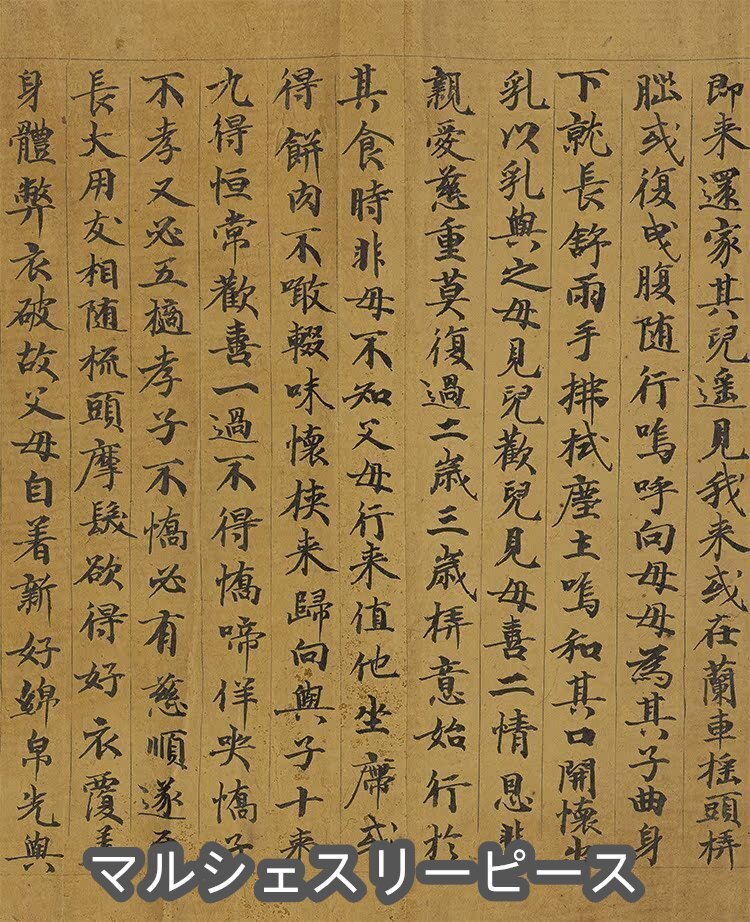 即来還家其兒遥見我来或在蘭車摇頭弄
腦或復曳腹随行嗚呼向母母為其子曲身
下就長舒兩手拂拭塵土嗚和其口開懷出
乳以乳與之母見兒歡兒見母喜二情恩悲
親愛慈重莫復過二歳三歳弄意始行於
其食時非母不知父母行来值他坐席或
得餅肉不噉輟味懷挾来歸向與子十来
九得恒常歡喜一過不得憍啼佯哭憍子
不孝又必五擿孝子不憍必有慈順遂
長大用友相随梳頭摩髮欲得好衣覆
身體弊衣破故父母自着新好綿帛先與
マルシェスリーピース